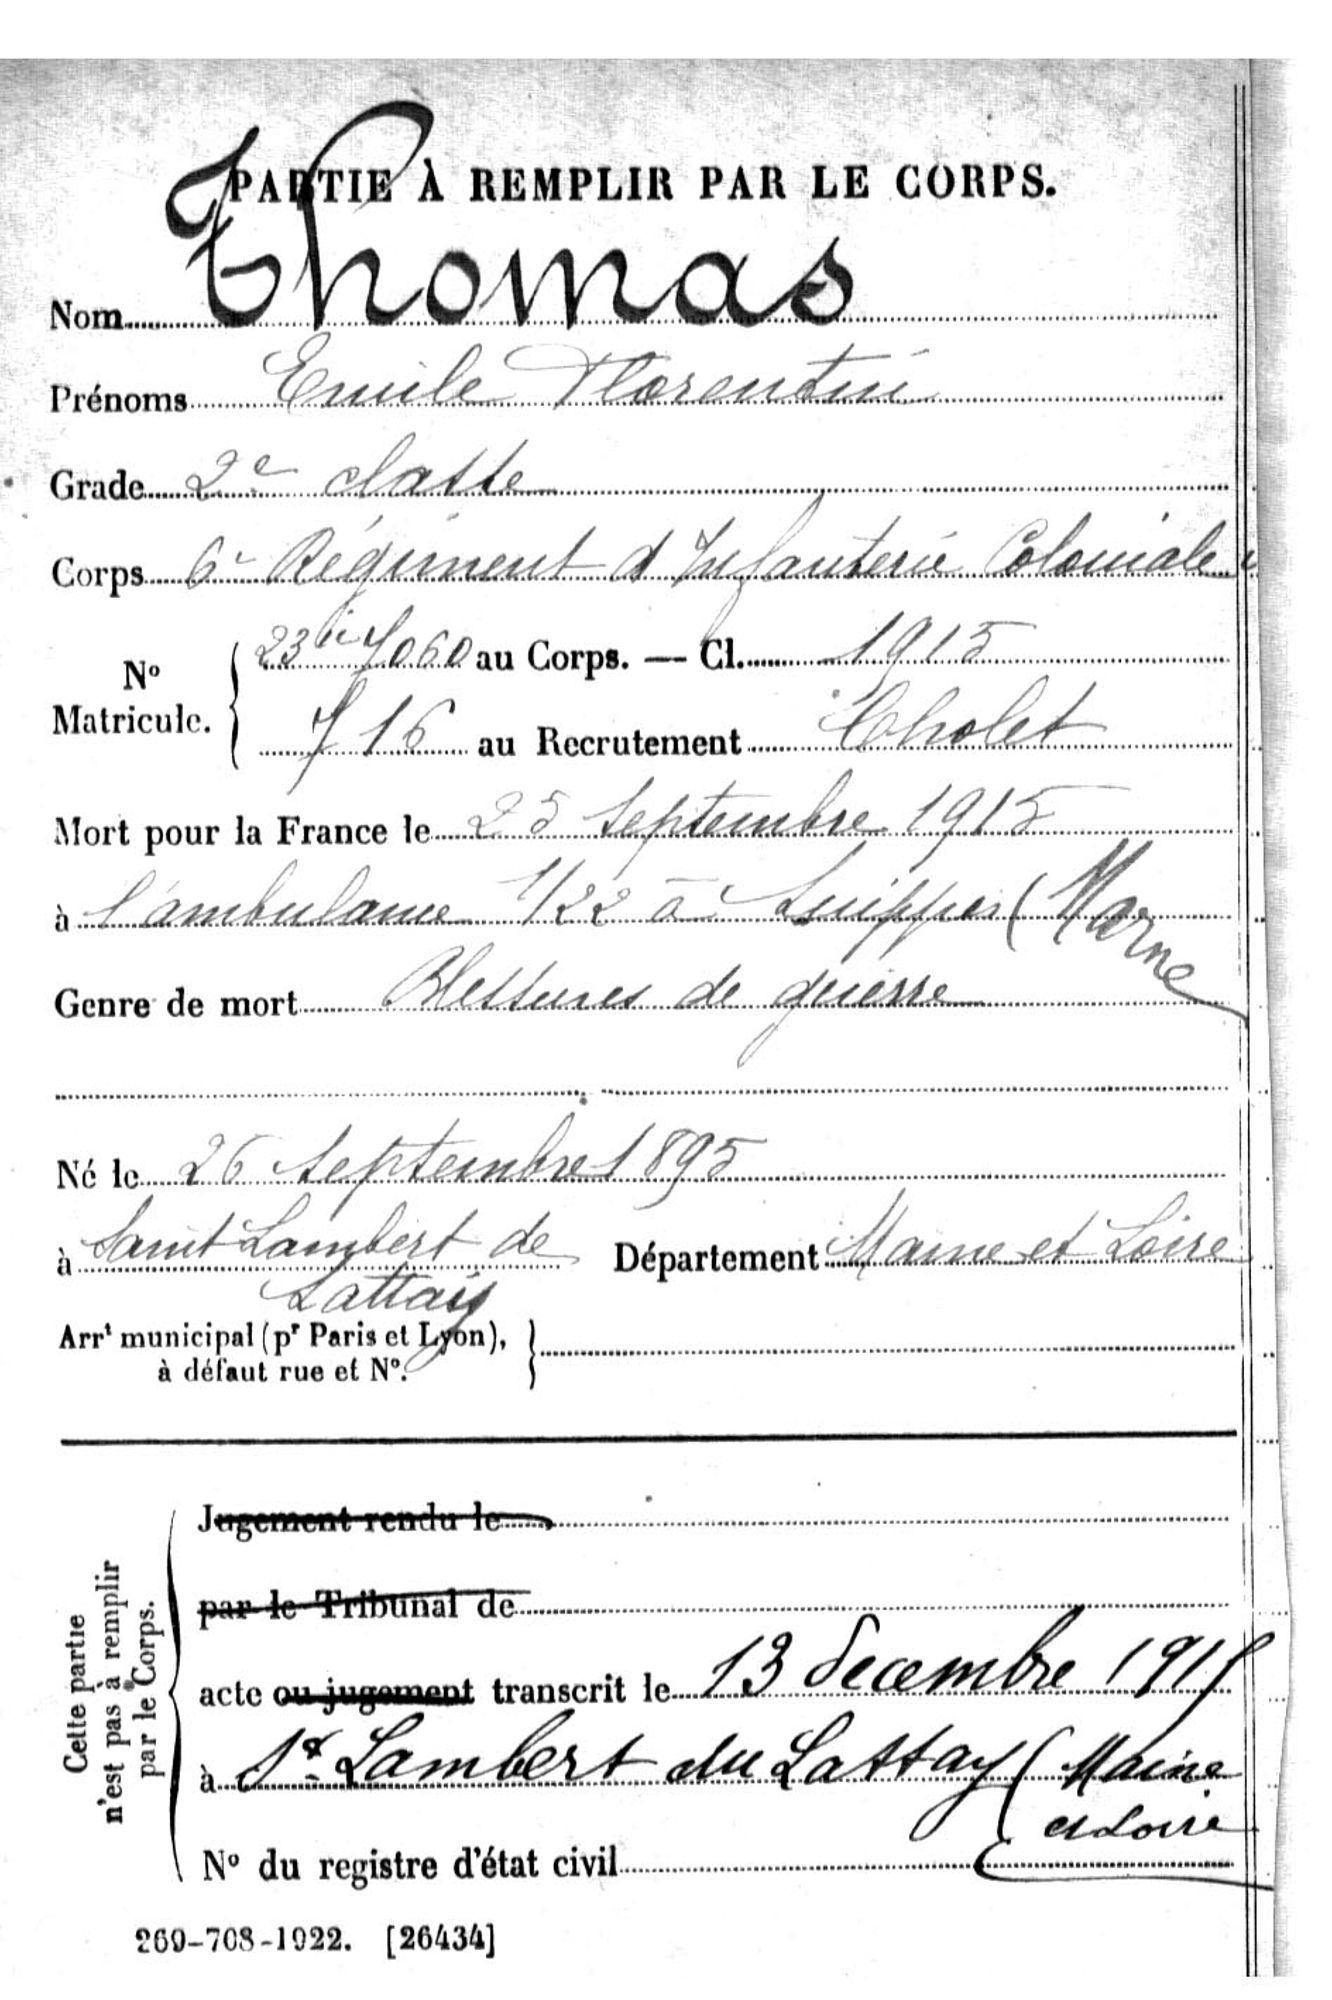 PARTIE À REMPLIR PAR LE CORPS.
Nom Thomas
Prénoms Emile Florentin
Grade 2e classe
Corps 6e Régiment d'Infanterie Coloniale
No Matricule. 7060 au Corps. — Cl. 1915
716 au Recrutement Cholet
Mort pour la France le 25 Septembre 1915
à l'ambulance 1/22 à Suippes (Marne
Genre de mort Blessures de guerre
Né le 26 Septembre 1895
à Saint Lambert de Lattay Département Maine et Loire
Arrt municipal (pr Paris et Lyon),
à défaut rue et No.
Cette partie
n'est pas à remplir
par le Corps.
Jugement rendu le
par le Tribunal de
acte ou jugement transcrit le 13 decembre 1915
à St Lambert du Lattay (Maine
et Loire
No du registre d'état civil
269-708-1922. [26434]